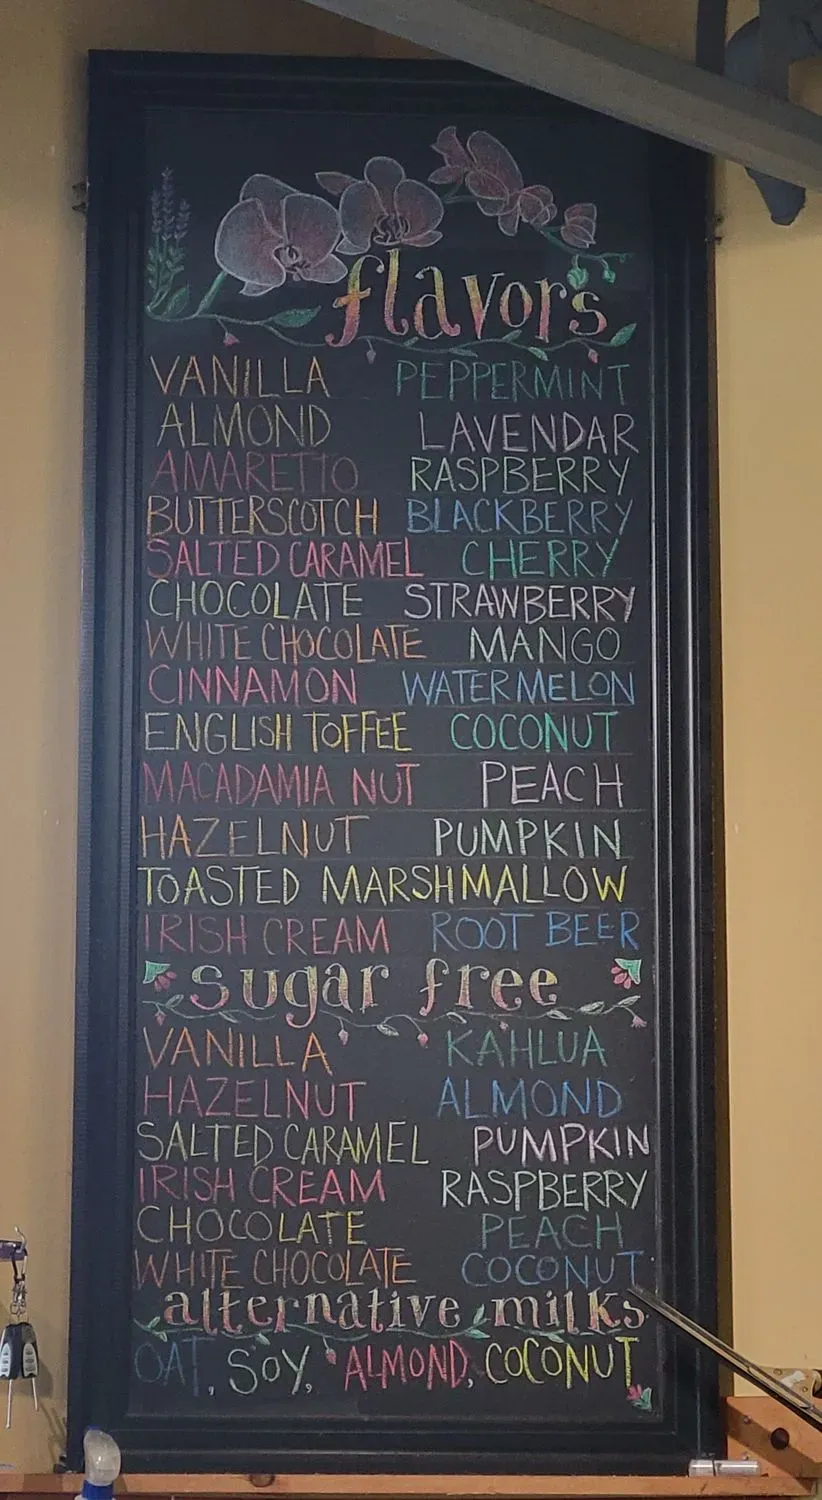 flavors
VANILLA PEPPERMINT
ALMOND LAVENDAR
AMARETTO RASPBERRY
BUTTERSCOTCH BLACKBERRY
SALTED CARAMEL CHERRY
CHOCOLATE STRAWBERRY
WHITE CHOCOLATE MANGO
CINNAMON WATERMELON
ENGLISH TOFFEE COCONUT
MACADAMIA NUT PEACH
HAZELNUT PUMPKIN
TOASTED MARSHMALLOW
IRISH CREAM ROOT BEER
sugar free
VANILLA KAHLUA
HAZELNUT ALMOND
SALTED CARAMEL PUMPKIN
IRISH CREAM RASPBERRY
CHOCOLATE PEACH
WHITE CHOCOLATE COCONUT
alternative milks
OAT, SOY, ALMOND, COCONUT